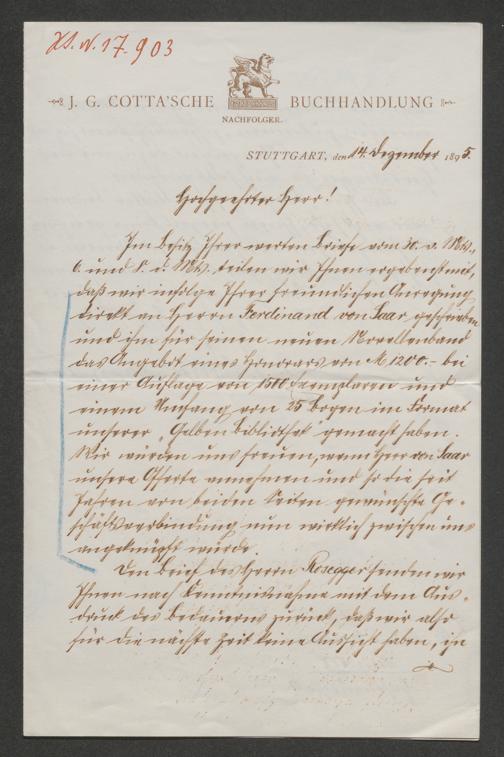 H.I.N. 17.903
J. G. COTTA'SCHE BUCHHANDLUNG
NACHFOLGER.
STUTTGART, den 14. Dezember 1895.
Hochgeehrter Herr!
Im Besitz Ihrer werten Briefe vom 30. v. Mts.,
6. und 8. d. Mts. teilen wir Ihnen ergebenst mit,
daß wir infolge Ihrer freundlichen Anregung
direkt an Herrn Ferdinand von Saar geschrieben
und ihm für seinen neuen Novellenband
das Angebot eines Honorars von M 1200.– bei
einer Auflage von 1500 Exemplaren und
einem Umfang von 25 Bogen im Format
unserer "Gelben Bibliothek" gemacht haben.
Wir würden uns freuen, wenn Herr von Saar
unsere Offerte annehmen und so die seit
Jahren von beiden Seiten gewünschte Ge-
schäftsverbindung nun wirklich zwischen uns
angeknüpft würde.
Den Brief des Herrn Rosegger senden wir
Ihnen nach Kenntnisnahme mit dem Aus-
druck des Bedauerns zurück, daß wir also
für die nächste Zeit keine Aussicht haben, ihn